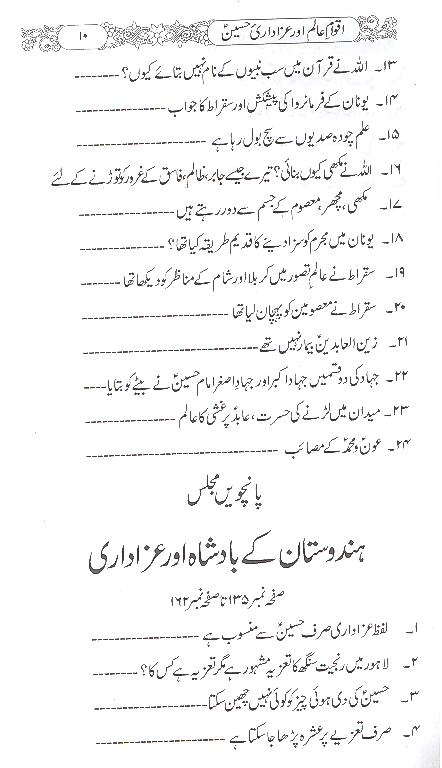 ۱۰ اقوامِ عالم اور عزاداریِ حسینؑ
۱۳۔ اللہ نے قرآن میں سب نبیوں کے نام نہیں بتائے کیوں؟ --------
۱۴۔ یونان کے فرمانروا کی پیشکش اور سقراط کا جواب ---------------
۱۵۔ علم چودہ صدیوں سے سچ بول رہا ہے ---------------
۱۶۔ اللہ نے مکھی کیوں بنائی؟ تیرے جیسے جابر، ظالم، فاسق کے غرور کو توڑنے کے لئے
۱۷۔ مکھی، مچھر، معصوم کے جسم سے دور رہتے ہیں ---------------
۱۸۔ یونان میں مجرم کو سزا دینے کا قدیم طریقہ کیا تھا؟ ------------
۱۹۔ سقراط نے عالمِ تصور میں کربلا اور شام کے مناظر کو دیکھا تھا -------
۲۰۔ سقراط نے معصومین کو پہچان لیا تھا ---------------
۲۱۔ زین العابدینؑ بیمار نہیں تھے ------------------
۲۲۔ جہاد کی دو قسمیں جہادِ اکبر اور جہادِ اصغر امام حسینؑ نے بیٹے کو بتایا----
۲۳۔ میدان میں لڑنے کی حسرت، عابدؑ پر غشی کا عالم ------------
۲۴۔ عونؑ و محمدؑ کے مصائب --------------------
پانچویں مجلس
ہندوستان کے بادشاہ اور عزاداری
صفحہ نمبر ۱۳۵ تا صفحہ نمبر ۱۶۲
۱۔ لفظ عزاداری صرف حسینؑ سے منسوب ہے ---------------
۲۔ لاہور میں رنجیت سنگھ کا تعزیہ مشہور ہے مگر تعزیہ ہے کس کا؟ --------
۳۔ حسینؑ کی دی ہوئی چیز کو کوئی نہیں چھین سکتا---------------
۴۔ صرف تعزیے پر عشرہ پڑھا جا سکتا ہے ------------------